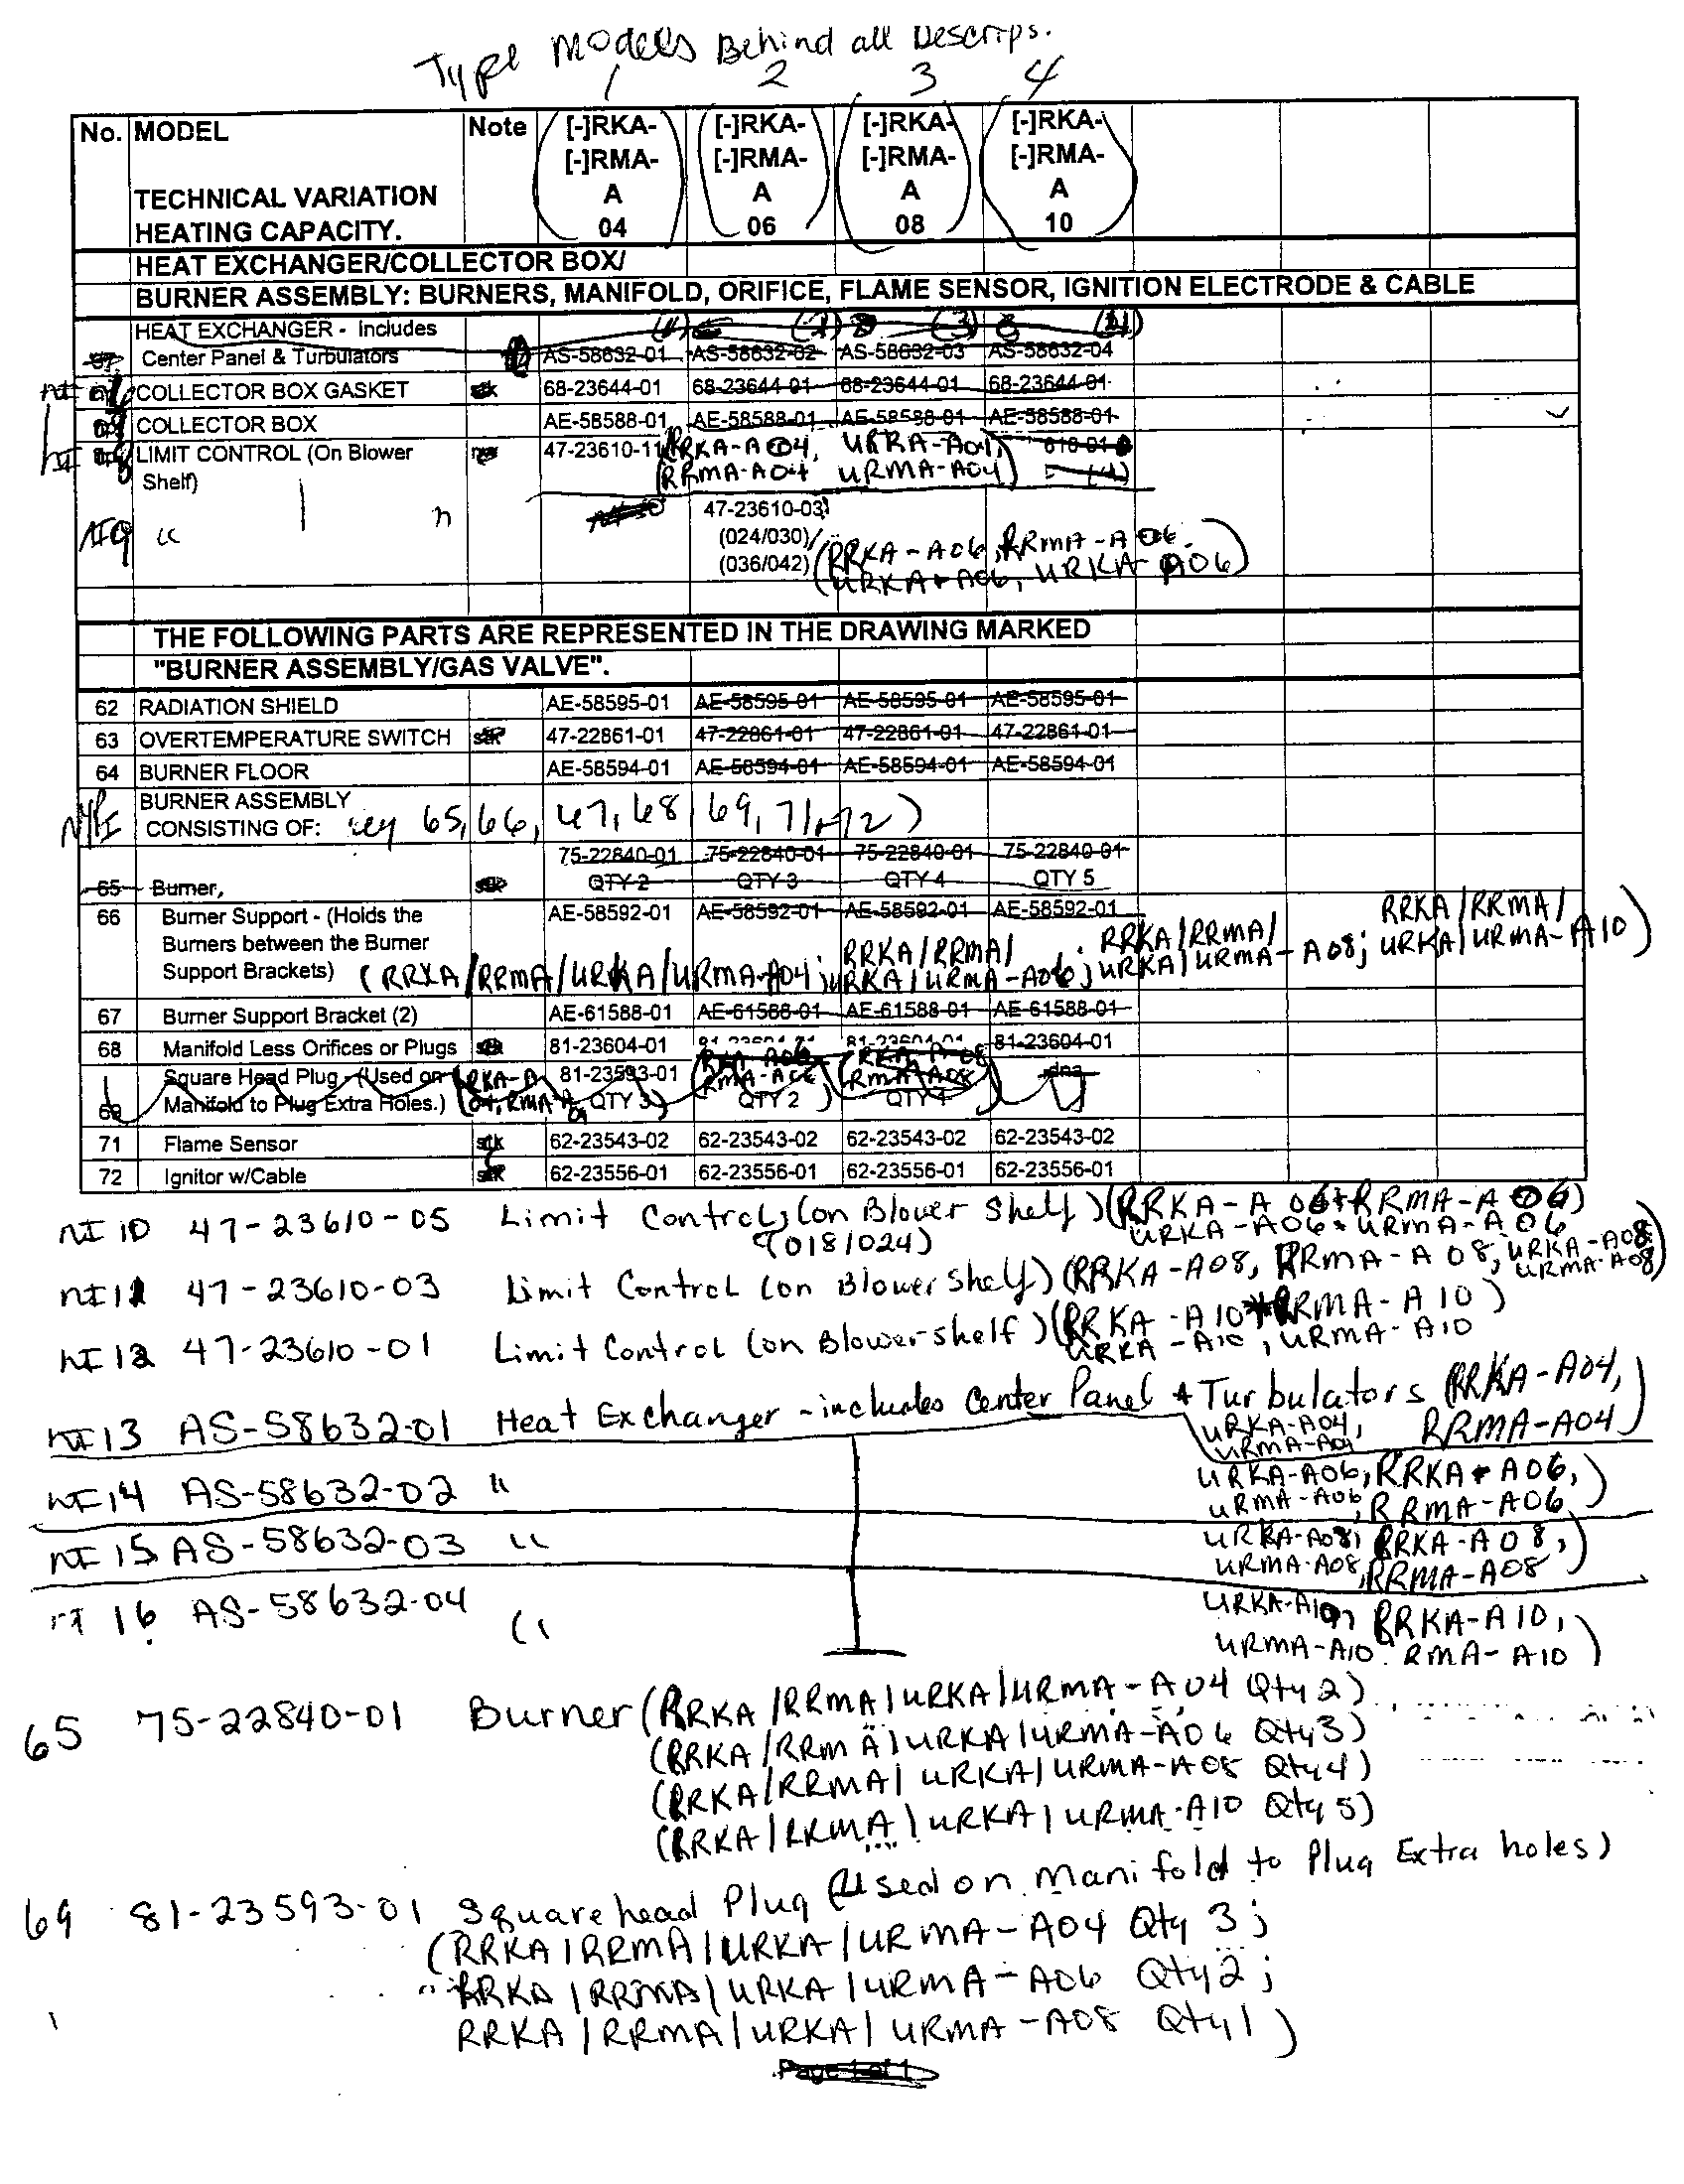 Type Models Behind all Descrips.
1 2 3 4
No. MODEL Note [-]RKA- [-]RKA- [-]RKA- [-]RKA-
[-]RMA- [-]RMA- [-]RMA- [-]RMA-
TECHNICAL VARIATION A A A A
HEATING CAPACITY. 04 06 08 10
HEAT EXCHANGER/COLLECTOR BOX/
BURNER ASSEMBLY: BURNERS, MANIFOLD, ORIFICE, FLAME SENSOR, IGNITION ELECTRODE & CABLE
HEAT EXCHANGER - Includes
Center Panel & Turbulators AS-58632-01 AS-58632-02 AS-58632-03 AS-58632-04
COLLECTOR BOX GASKET 68-23644-01 68-23644-01 68-23644-01 68-23644-01
COLLECTOR BOX AE-58588-01 AE-58588-01 AE-58588-01 AE-58588-01
LIMIT CONTROL (On Blower 47-23610-11 (RRKA-A04, URKA-A04,
Shelf) RRMA-A04 URMA-A04)
NI9 " 47-23610-03
(024/030)/
(036/042) (RRKA-A06, RRMA-A06
URKA-A06, URKA-A06)
THE FOLLOWING PARTS ARE REPRESENTED IN THE DRAWING MARKED
"BURNER ASSEMBLY/GAS VALVE".
62 RADIATION SHIELD AE-58595-01 AE-58595-01 AE-58595-01 AE-58595-01
63 OVERTEMPERATURE SWITCH 47-22861-01 47-22861-01 47-22861-01 47-22861-01
64 BURNER FLOOR AE-58594-01 AE-58594-01 AE-58594-01 AE-58594-01
BURNER ASSEMBLY
CONSISTING OF: key 65, 66, 67, 68, 69, 71, 72)
75-22840-01 75-22840-01 75-22840-01 75-22840-01
65 Burner, QTY 2 QTY 3 QTY 4 QTY 5
66 Burner Support - (Holds the AE-58592-01 AE-58592-01 AE-58592-01 AE-58592-01
Burners between the Burner RRKA/RRMA/ RRKA/RRMA/ RRKA/RRMA/
Support Brackets) (RRKA/RRMA/URKA/URMA-A04; URKA/URMA-A06; URKA/URMA-A08; URKA/URMA-A10)
67 Burner Support Bracket (2) AE-61588-01 AE-61588-01 AE-61588-01 AE-61588-01
68 Manifold Less Orifices or Plugs 81-23604-01 81-23604-01 81-23604-01 81-23604-01
Square Head Plug - (Used on (RKA-A 81-23593-01 RKA-A06 (RKA-A08 dna
69 Manifold to Plug Extra Holes.) QTY 3 RMA-A06 QTY 2 RMA-A08 QTY 1
71 Flame Sensor stk 62-23543-02 62-23543-02 62-23543-02 62-23543-02
72 Ignitor w/Cable stk 62-23556-01 62-23556-01 62-23556-01 62-23556-01
NI 10 47-23610-05 Limit Control (on Blower Shelf) (RRKA-A06 + RRMA-A06)
(018/024) URKA-A06 + URMA-A06
NI 11 47-23610-03 Limit Control (on Blower Shelf) (RRKA-A08, RRMA-A08, URKA-A08
URMA-A08)
NI 12 47-23610-01 Limit Control (on Blower shelf) (RRKA-A10 + RRMA-A10)
URKA-A10, URMA-A10
NI 13 AS-58632-01 Heat Exchanger - includes Center Panel + Turbulators (RRKA-A04,
URKA-A04, RRMA-A04)
URMA-A04
NI 14 AS-58632-02 " URKA-A06, RRKA-A06,
URMA-A06, RRMA-A06)
NI 15 AS-58632-03 " URKA-A08, RRKA-A08,
URMA-A08, RRMA-A08)
NI 16 AS-58632-04 " URKA-A10, RRKA-A10,
URMA-A10 RMA-A10)
65 75-22840-01 Burner (RRKA/RRMA/URKA/URMA-A04 Qty 2)
(RRKA/RRMA/URKA/URMA-A06 Qty 3)
(RRKA/RRMA/URKA/URMA-A08 Qty 4)
(RRKA/RRMA/URKA/URMA-A10 Qty 5)
69 81-23593-01 Squarehead Plug (Used on Manifold to Plug Extra holes)
(RRKA/RRMA/URKA/URMA-A04 Qty 3;
RRKA/RRMA/URKA/URMA-A06 Qty 2;
RRKA/RRMA/URKA/URMA-A08 Qty 1)
Page 1 of 1